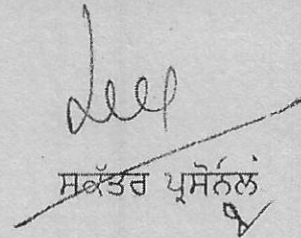 ਸਕੱਤਰ ਪ੍ਰਸੋਨਲ